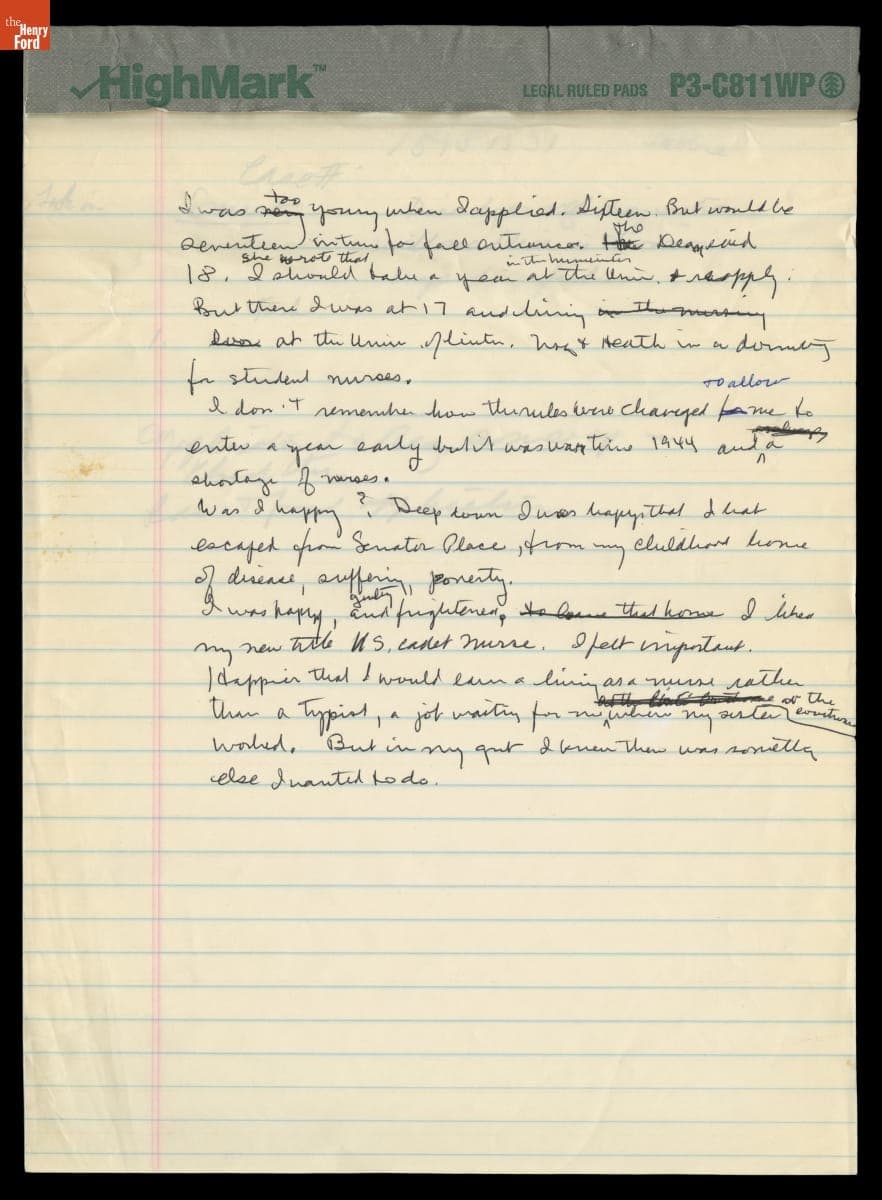 the
Henry
Ford
HighMark™
LEGAL RULED PADS P3-C811WP
too
I was very young when I applied. Sixteen. But would be
The
seventeen in time for fall entrance. Dean said
she wrote that in the humanities
18. I should take a year at the Univ. + reapply.
But there I was at 17 and living in the nursing
at the Univ. of Nsg + Heath in a dormitory
for student nurses.
to allow
I don't remember how the rules were changed for me to
enter a year early but it was war time 1944 and a
shortage of nurses.
Was I happy? Deep down I was happy that I had
escaped from Senator Place, from my childhood home
of disease, suffering, poverty.
guilty
I was happy, and frightened, to leave that home I liked
my new title U.S. cadet nurse. I felt important.
Happier that I would earn a living as a nurse rather
at the
than a typist, a job waiting for me, where my sister courthouse
worked. But in my gut I knew there was something
else I wanted to do.